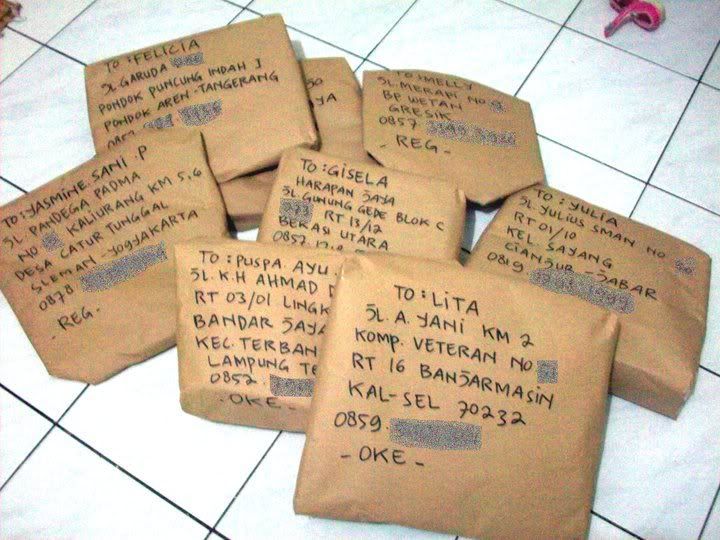 TO : FELICIA
JL. GARUDA
PONDOK PUNCUNG INDAH I
PONDOK AREN - TANGERANG
0857
50
YA
TO : MELLY
JL. MERAPI NO
BP WETAN
GRESIK
0857
- REG -
TO : YASMINE SANI . P
JL. PANDEGA PADMA
NO. KALIURANG KM 5,6
DESA CATUR TUNGGAL
SLEMAN - YOGYAKARTA
0878
- REG -
TO : GISELA
HARAPAN JAYA
JL. GUNUNG GEDE BLOK C
RT 13/12
BEKASI UTARA
0857
TO : YULIA
JL YULIUS SMAN NO
RT 01/10
KEL SAYANG
CIANJUR - JABAR
0819
TO : PUSPA AYU
JL. K.H AHMAD
RT 03/01 LINGK
BANDAR JAYA
KEC. TERBAN
LAMPUNG TE
0852
- OKE -
TO : LITA
JL. A. YANI KM 2
KOMP. VETERAN NO
RT 16 BANJARMASIN
KAL-SEL 70232
0859.
- OKE -